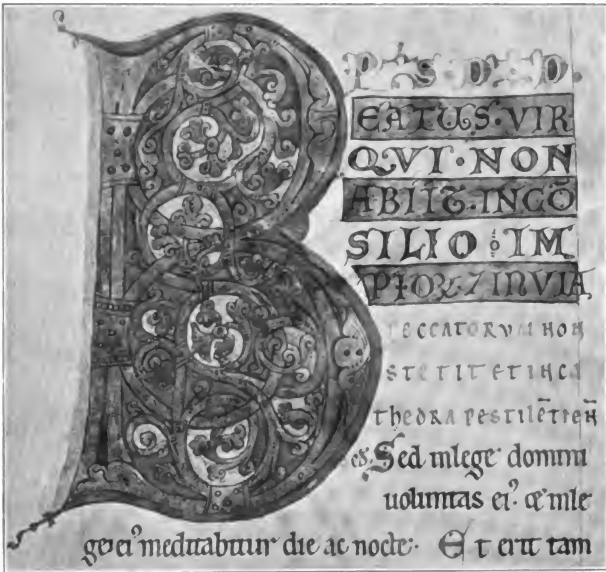 PS D̄D.
BEATUS·VIR
QVI·NON
ABIIT·INCŌ
SILIO IM
PIOR 7 INVIA
PECCATORVM NON
STETIT ET INCA
THEDRA PESTILĒTIE Ñ
Sed inlege domini
uoluntas ei᾽. & inle
ge ei᾽ meditabitur die ac nocte. Et erit tam